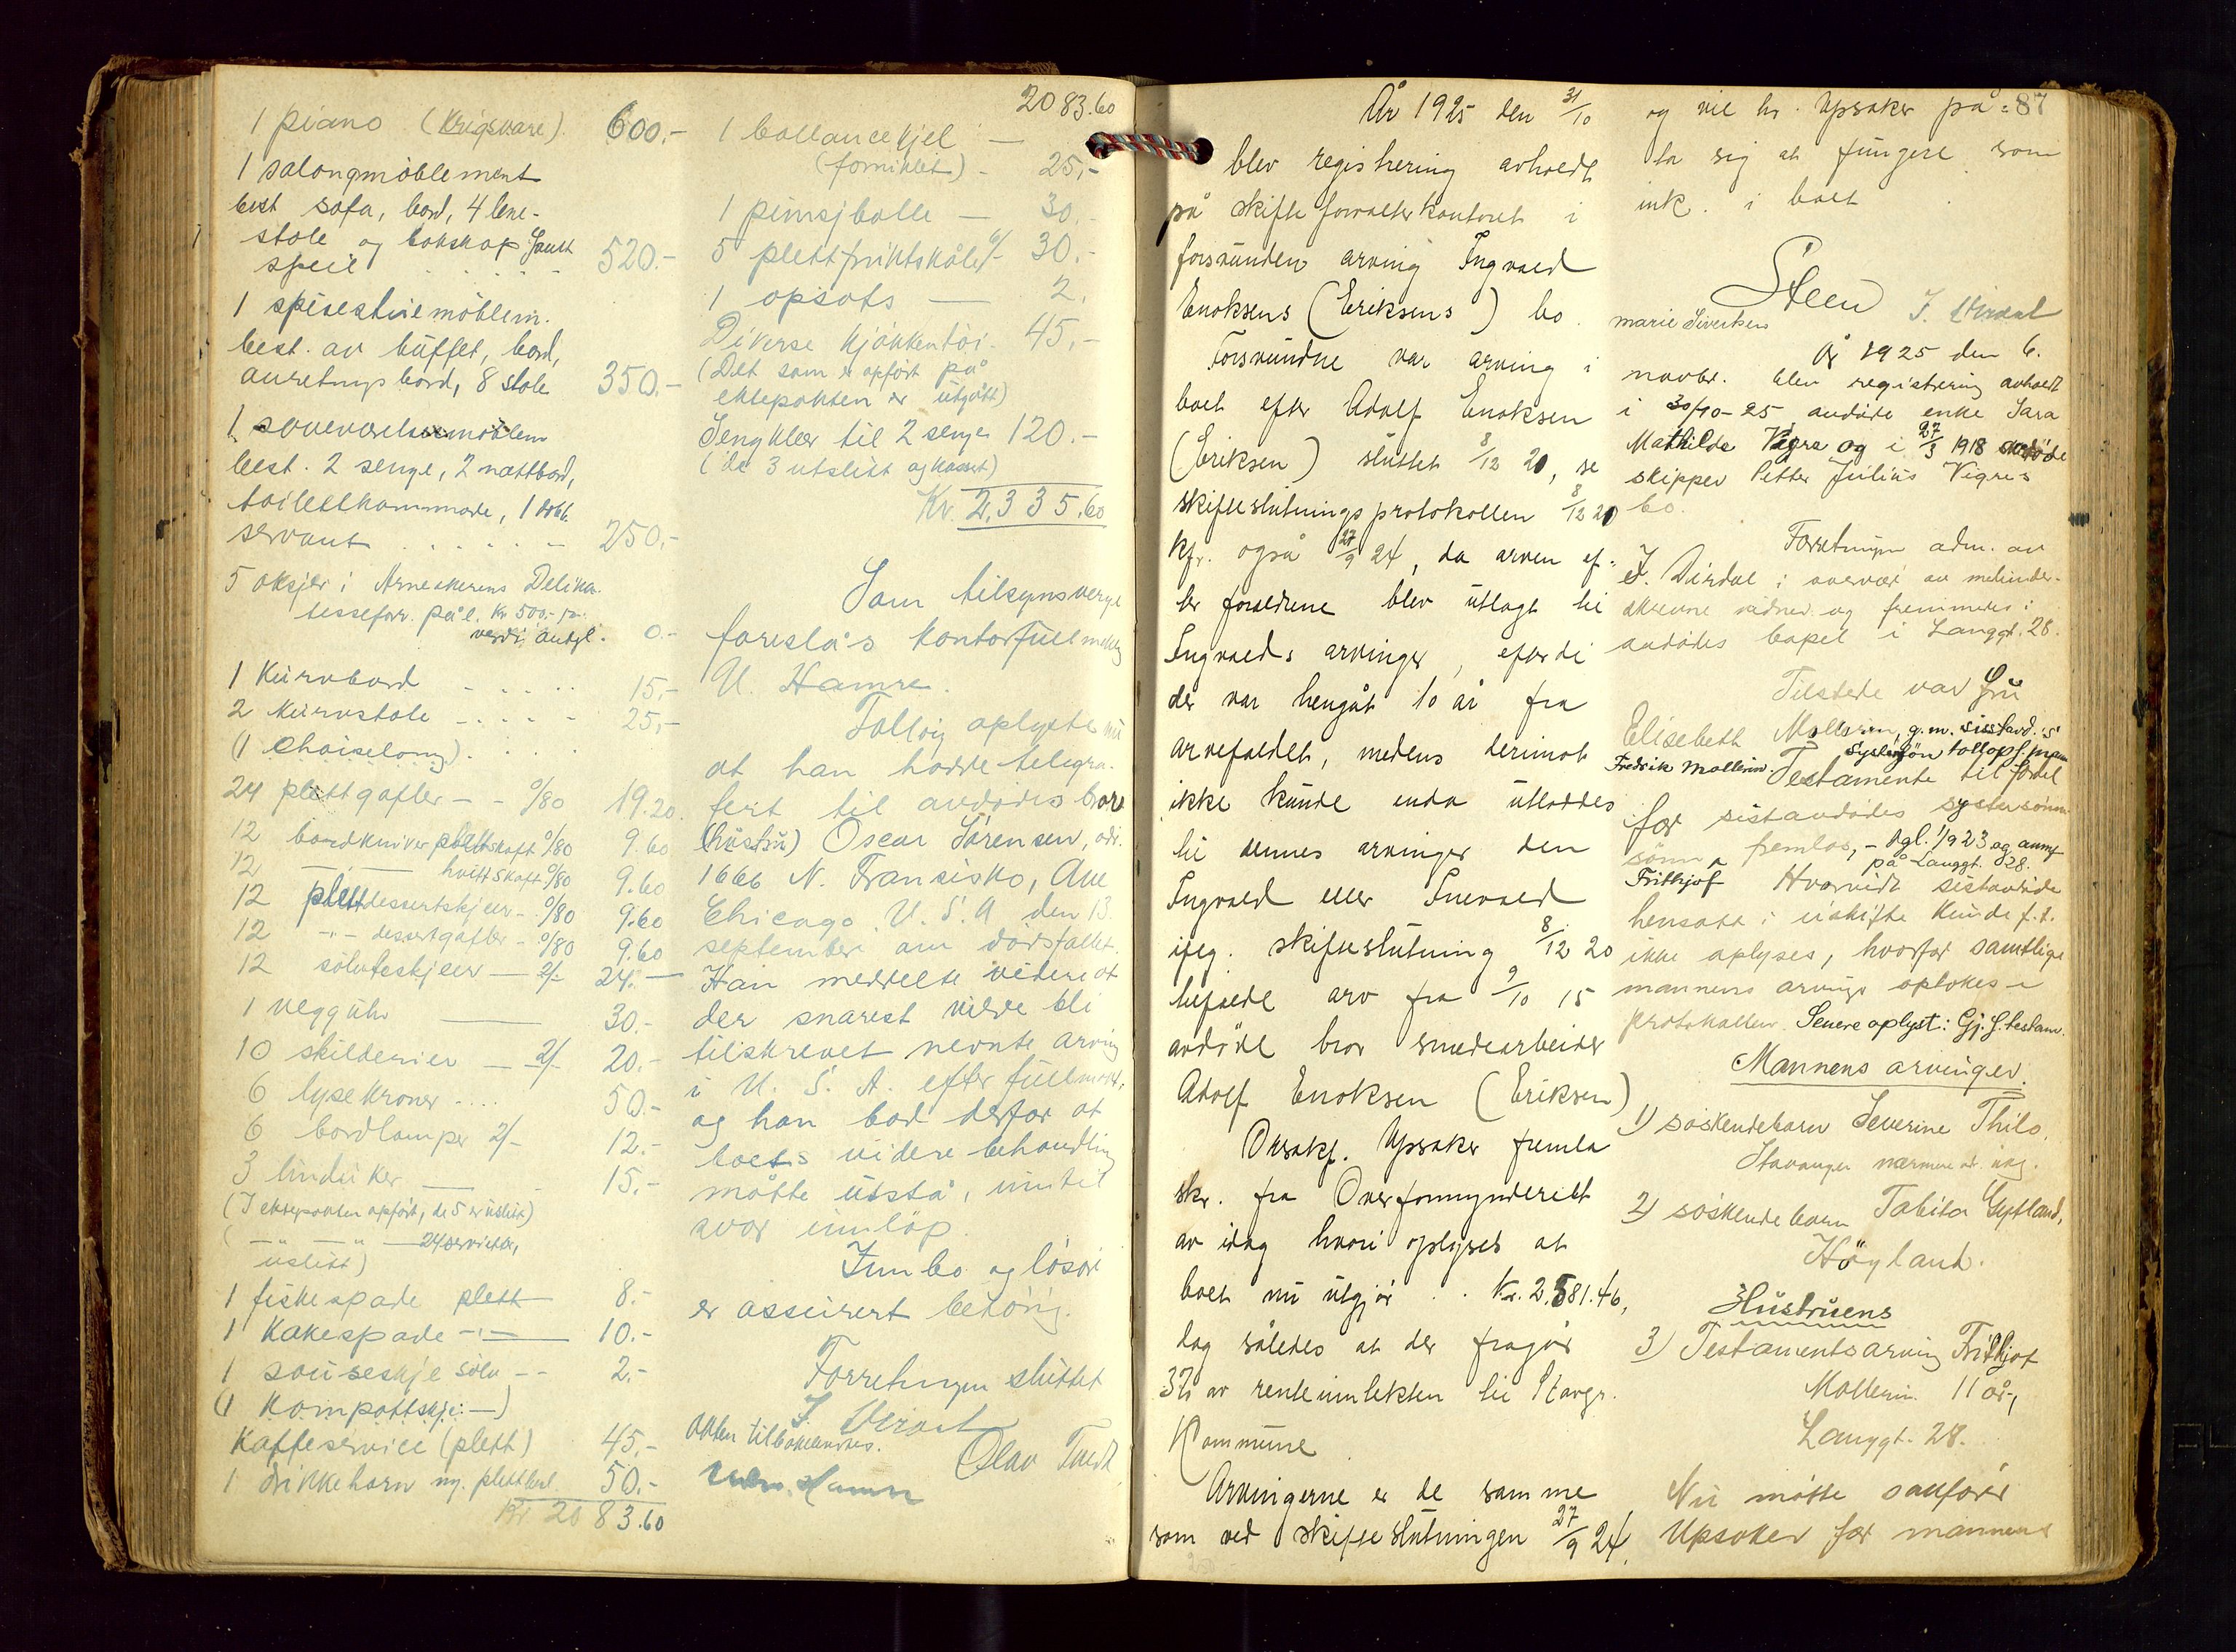 1 piano (Krigsvare). 600.-
1 salongmöblement
best sofa, bord, 4 lene-
stole og bokskap samt
speil 520.-
1 spisestuemöblem.
best. av buffet, bord,
anretnings bord, 8 stole 350.-
1 soveværelsesmöblem
best. 2 senge, 2 nattbord,
toilettkommode, 1 dobb.
servant 250.-
5 aksjer i Arneakerens Delika-
tesseforr. pål. Kr 500.-
verdi antgl. 0.-
1 Kurvbord 15.-
2 Kurvstole 25.-
(1 Chaiselong)
24 plettgafler - - 0/80 19.20.
12 bordkniver plettskaft 0/80 9.60
12 — hvitt skaft 0/80 9.60
12 plettdessertskjeer - 0/80 9.60
12 -"- dessertgafler - 0/80 9.60
12 sölvteskjeer — 2/- 24.-
1 veggühr — 30.-
10 skilderier — 2/- 20.-
6 lysekroner 50.-
6 bordlamper 2/- 12.-
3 linduker — 15.-
(I ektepakten opfört, de 5 er üslitt)
( — " — " — 24 servietter,
üslitt)
1 fiskespade plett 8.-
1 Kakespade -"- 10.-
1 souseskje sölv - - 2.-
(1 Kompottskje: —)
Kaffeservice (plett) 45.-
1 drikkehorn ny. plettbesl. 50.-
Kr 2083.60
2083.60
1 ballancekjel —
(forniklet) - 25,-
1 punsjbolle — 30.-
5 plettfruktskåler 6/- 30.-
1 opsats — 2.
Diverse kjökkentöi - 45,-
(Det som er opfört på
ektepakten er utgått)
Sengklær til 2 senge 120.-
(de 3 utslitt og kassert)
Kr. 2,335.60
Som tilsynsverge
foreslås kontorfüllmektig
U. Hamre.
Tollvig oplyste nü
at han hadde telegra-
fert til avdödes bror
(hustru) Oscar Sörensen, adr.
1666 N. Fransisko, Ave
Chicago U.S.A den 13.
september om dödsfallet.
Han meddelte videre at
der snarest vilde bli
tilskrevet nevnte arving
i U.S.A. efter füllmakt,
og han bad derfor at
boets videre behandling
måtte utstå, inntil
svar innlöp.
Innbo og lösöre
er assurert behörig.
Forretningen sluttet
Akten tilbakeleveres.
Olav Tvedt
År 1925 den 31/10
blev registrering avholdt
på skifteforvalterkontoret i
forsvunden arving Ingvald
Enoksens (Eriksens) bo.
Forsvundne var arving i
boet efter Adolf Enoksen
(Eriksen) sluttet 8/12 20, se
skifteslutningsprotokollen 8/12 20
kfr. også 27/9 24, da arven ef-
ter foreldrene blev utlagt til
Ingvalds arvinger, efterdi
der var hengåt 10 år fra
arvefaldet, medens derimot
ikke kunde enda utloddes
til dennes arvinger den
Ingvald eller Inevald
ifög. skifteslutning 8/12 20
tilfaldt arv fra 9/10 15
avdöde bror smedarbeider
Adolf Enoksen (Eriksen)
Orsakf. Upsaker fremla
skr. fra Overformynderiet
av idag hvori oplyses at
boet nu utgjör . . Kr. 2.581.46,
dog således at der fragår
3% av renteinntekten til Stavgr.
Kommune
Arvingerne er de samme
som ved skifteslutningen 27/9 24.
87
og vil hr. Upsaker på-
ta sig at fungere som
ink. i boet
Steen
Marie Sivertsen J. Dirdal
År 1925 den 6.
novbr. blev registrering avholdt
i 30/10-25 avdöde enke Sara
Mathilde Vigre og i 27/3 1918 avdöde
skipper Petter Julius Vigres
bo.
Forretningen adm. av
J. Dirdal i overvær av medunder-
skrevne vidner og fremmedes i
avdödes bopel i Langgt. 28.
Tilstede var Fru
Elisebeth Mollerin, g.m. sistavd.'s
Systersön tollopf.mann
Fredrik Mollerin. Testamente til fordel
for sistavdödes systersönns
sönn Frithjof fremlas, - dgl. 1/9 23 og annf
på Langgt. 28.
Hvorvidt sistavdöde
hensatt i uskifte kunde f.t.
ikke oplyses, hvorfor samtlige
mannens arvinge optokes i
protokollen. Senere oplyst: Gj.s. testam.
Mannens arvinger.
1) söskendebarn Severine Thilo,
Stavanger nærmere at. mg.
2) söskendebarn Tabita Gytland,
Höyland.
Hustruens
3) Testamentsarving Frithjof
Mollerin 11 år,
Langgt. 28.
Nu mötte sakförer
Upsaker for mannens